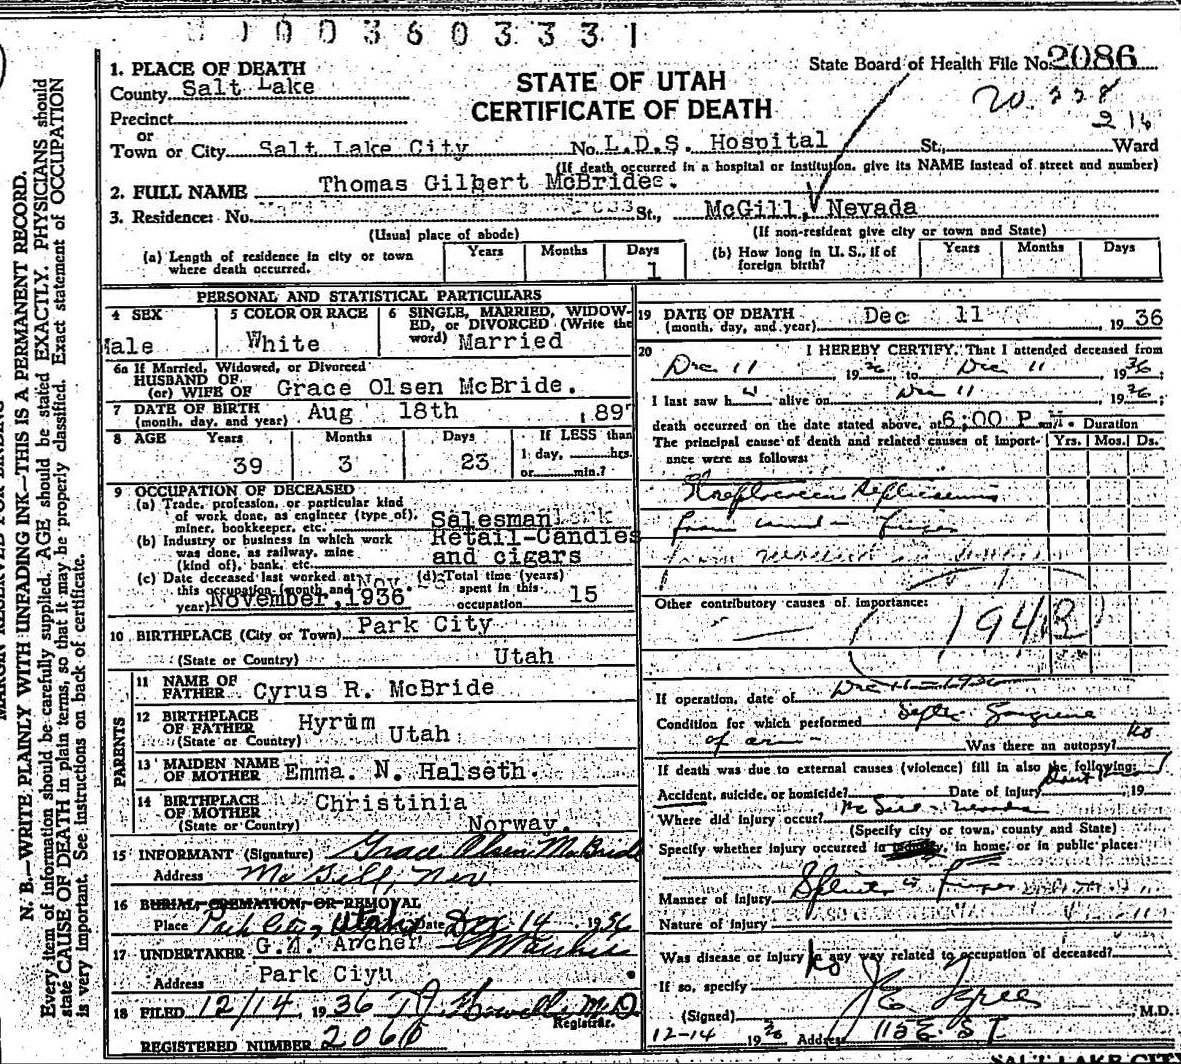 0003603331
State Board of Health File No. 2086
STATE OF UTAH
CERTIFICATE OF DEATH
1. PLACE OF DEATH
County Salt Lake
Precinct
or
Town or City Salt Lake City No. L.D.S. Hospital St., Ward
(If death occurred in a hospital or institution, give its NAME instead of street and number)
2. FULL NAME Thomas Gilbert McBride.
3. Residence: No. St., McGill, Nevada
(Usual place of abode) (If non-resident give city or town and State)
(a) Length of residence in city or town where death occurred. Years Months Days 1
(b) How long in U. S., if of foreign birth? Years Months Days
PERSONAL AND STATISTICAL PARTICULARS
4 SEX Male
5 COLOR OR RACE White
6 SINGLE, MARRIED, WIDOWED, or DIVORCED (Write the word) Married
6a If Married, Widowed, or Divorced
HUSBAND OF
(or) WIFE OF Grace Olsen McBride.
7 DATE OF BIRTH (month, day, and year) Aug 18th 1897
8 AGE Years 39 Months 3 Days 23 If LESS than 1 day, hrs. or min.?
9 OCCUPATION OF DECEASED
(a) Trade, profession, or particular kind of work done, as engineer (type of), miner, bookkeeper, etc. Salesman
(b) Industry or business in which work was done, as railway, mine (kind of), bank, etc. Retail-Candies and cigars
(c) Date deceased last worked at this occupation (month and year) November, 1936
(d) Total time (years) spent in this occupation 15
10 BIRTHPLACE (City or Town) Park City
(State or Country) Utah
PARENTS
11 NAME OF FATHER Cyrus R. McBride
12 BIRTHPLACE OF FATHER Hyrum
(State or Country) Utah
13 MAIDEN NAME OF MOTHER Emma. N. Halseth.
14 BIRTHPLACE OF MOTHER Christinia
(State or Country) Norway.
15 INFORMANT (Signature) Grace Olsen McBride
Address McGill, Nev
16 BURIAL, CREMATION, OR REMOVAL
Place Park City, Utah Date Dec. 14 1936
17 UNDERTAKER G.A. Archer
Address Park Ciyu
18 FILED 12/14 1936 M.D.
Registrar.
REGISTERED NUMBER 2060
19 DATE OF DEATH (month, day, and year) Dec 11 1936
20 I HEREBY CERTIFY, That I attended deceased from
Dec 11 1936 to Dec 11 1936;
I last saw h alive on Dec 11 1936;
death occurred on the date stated above, at 6:00 P m. Duration
The principal cause of death and related causes of importance were as follows: Yrs. Mos. Ds.
Streptococcic Septicemia
from wound in finger
Other contributory causes of importance:
If operation, date of
Condition for which performed Septic Gangrene
of arm Was there an autopsy? No
If death was due to external causes (violence) fill in also the following:
Accident, suicide, or homicide? Date of injury 19
Where did injury occur? McGill - Nevada
(Specify city or town, county and State)
Specify whether injury occurred in industry, in home, or in public place:
Manner of injury Splinter in Finger
Nature of injury
Was disease or injury in any way related to occupation of deceased? No
If so, specify
(Signed) M.D.
12-14 1936 Address 115 E. S.T.
SALT LAKE CITY
N. B.—WRITE PLAINLY WITH UNFADING INK—THIS IS A PERMANENT RECORD.
Every item of information should be carefully supplied. AGE should be stated EXACTLY. PHYSICIANS should
state CAUSE OF DEATH in plain terms, so that it may be properly classified. Exact statement of OCCUPATION
is very important. See instructions on back of certificate.